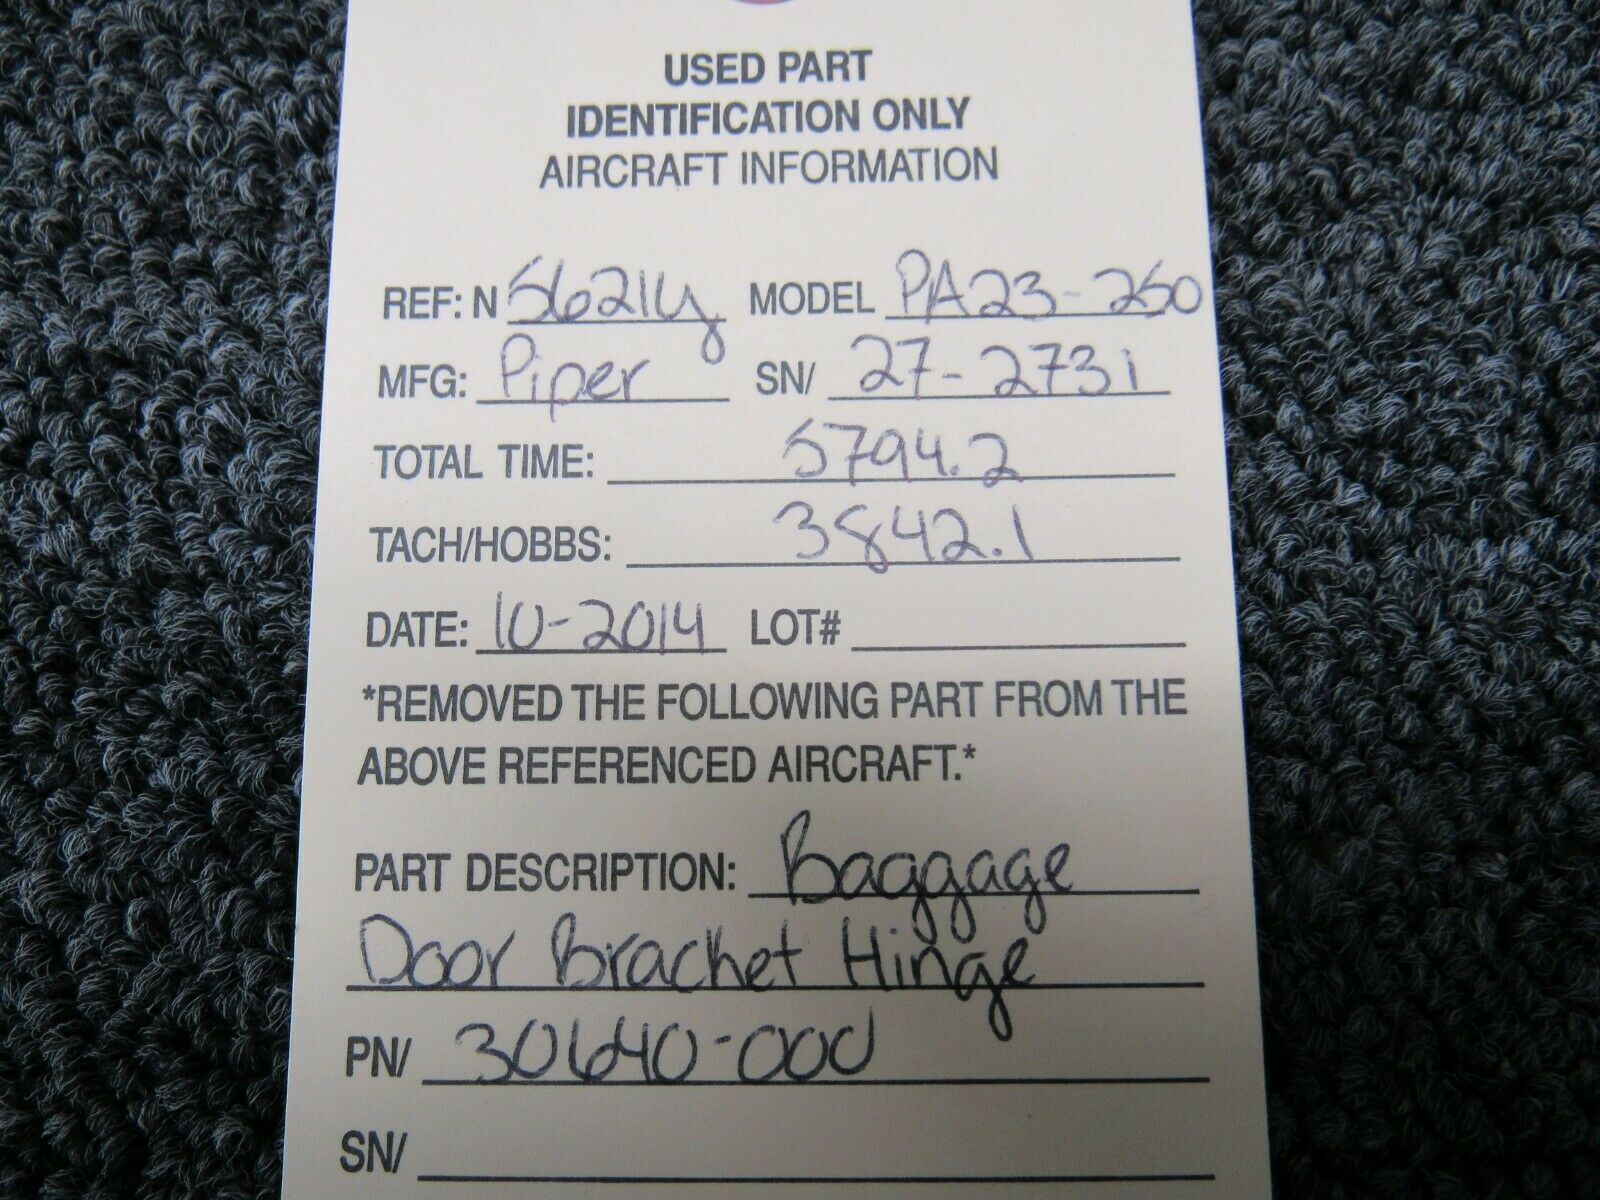 USED PART
IDENTIFICATION ONLY
AIRCRAFT INFORMATION
REF: N 5621y MODEL PA23-250
MFG: Piper SN/ 27-2731
TOTAL TIME: 5794.2
TACH/HOBBS: 3842.1
DATE: 10-2014 LOT#
*REMOVED THE FOLLOWING PART FROM THE
ABOVE REFERENCED AIRCRAFT.*
PART DESCRIPTION: Baggage
Door Bracket Hinge
PN/ 30640-000
SN/